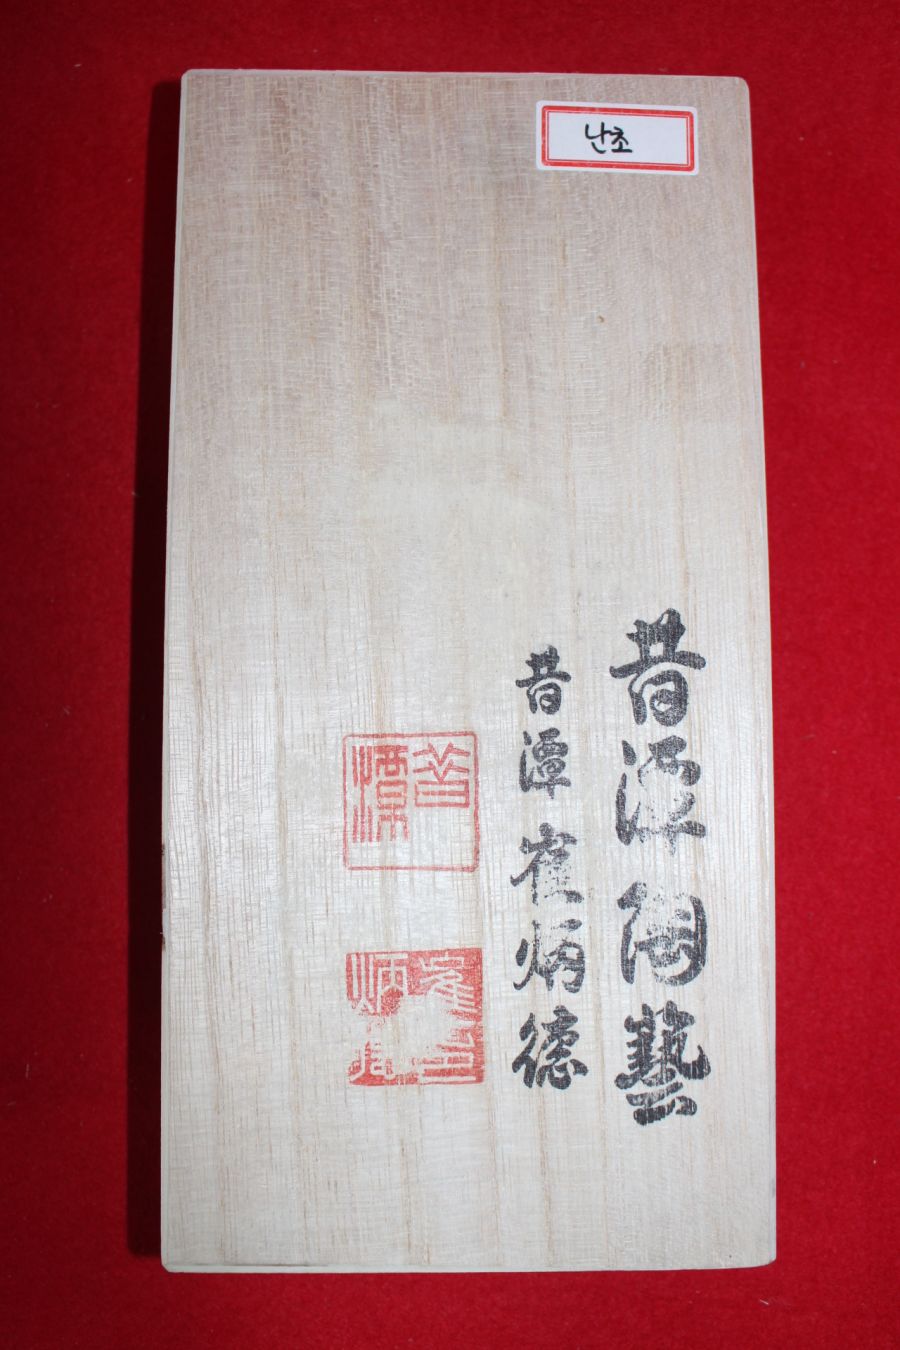 난초
昔潭陶藝
昔潭 崔炳德
昔潭
崔
炳